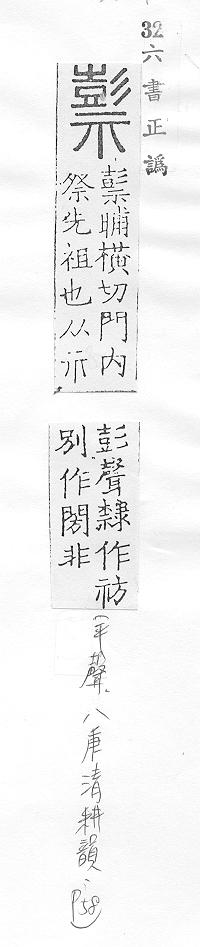 32六書正譌
𥛱
𥛱晡橫切門內
祭先祖也从示
彭聲隸作祊
別作閍非
(平聲、八庚清耕韻、P58)